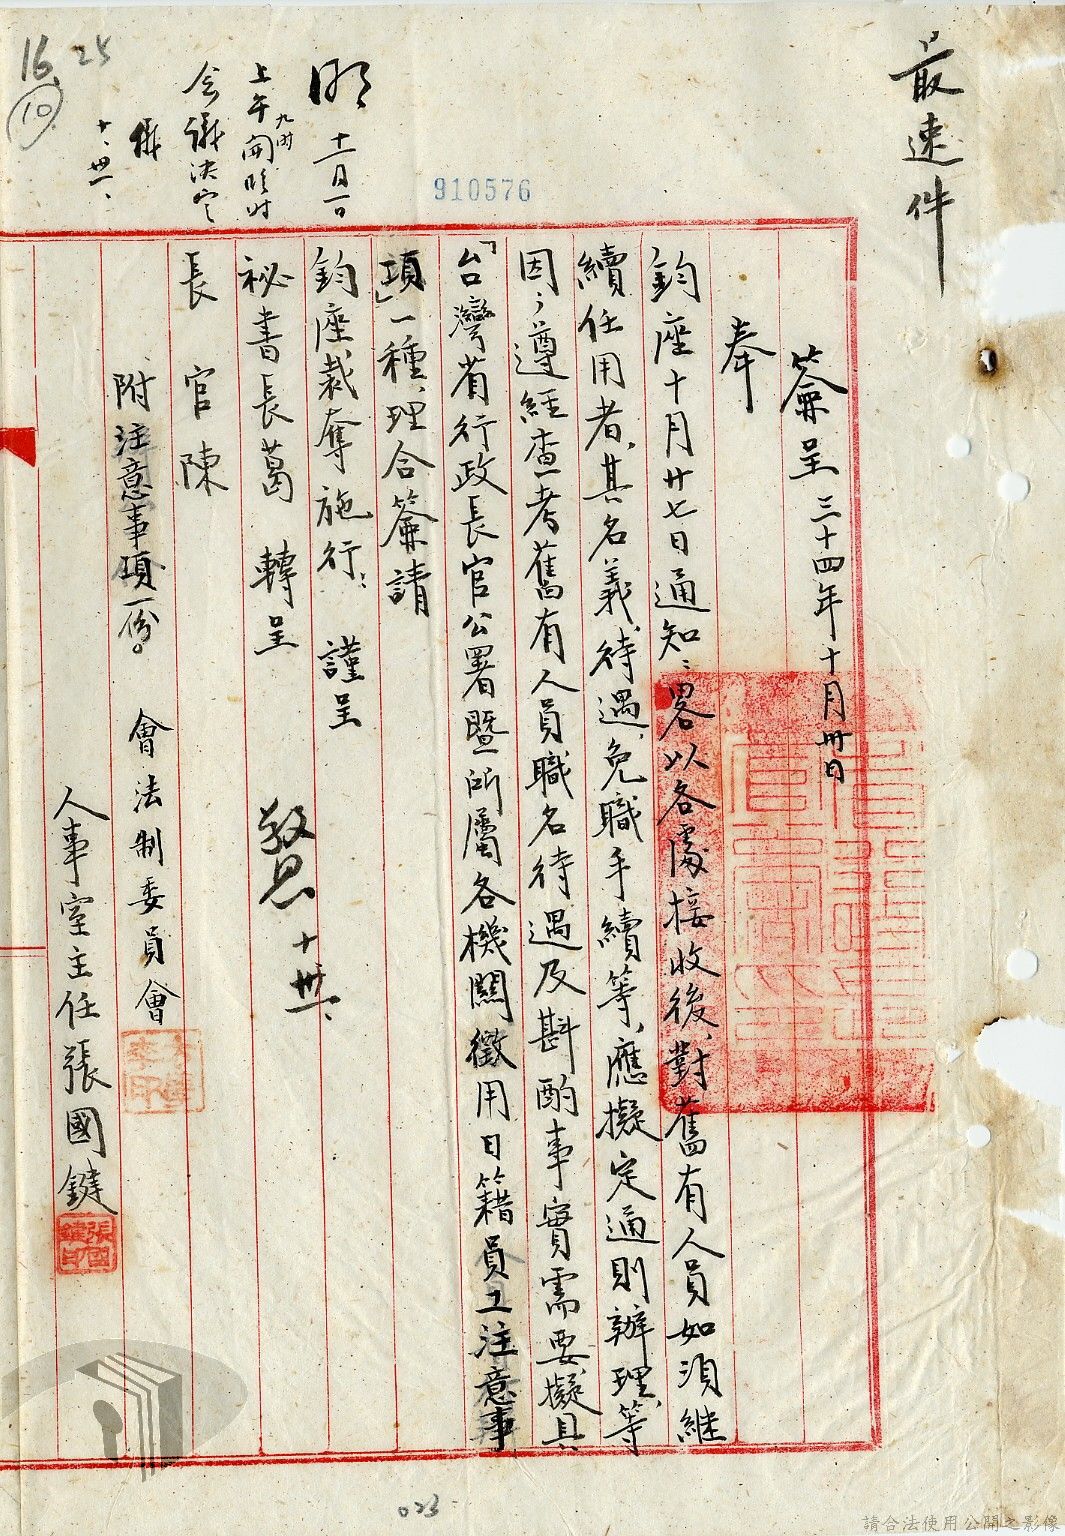 最速件
簽呈 三十四年十月卅日
奉
鈞座十月廿七日通知：畧以各處接收後，對舊有人員如須繼
續任用者，其名義、待遇、免職手續等，應擬定通則辦理等
因；遵經查考舊有人員職名待遇及斟酌事實需要，擬具
「台灣省行政長官公署暨所屬各機關徵用日籍員工注意事
項」一種，理合簽請
鈞座裁奪施行： 謹呈
秘書長葛 轉呈
長官陳
附注意事項一份。
會法制委員會
人事室主任張國鍵
張國鍵印
敬恩 十、卅一、
明 十一月一日
上午九時開臨時
會議決定
儀
十、卅一、
910576
16 25
10
023
請合法使用公開之影像